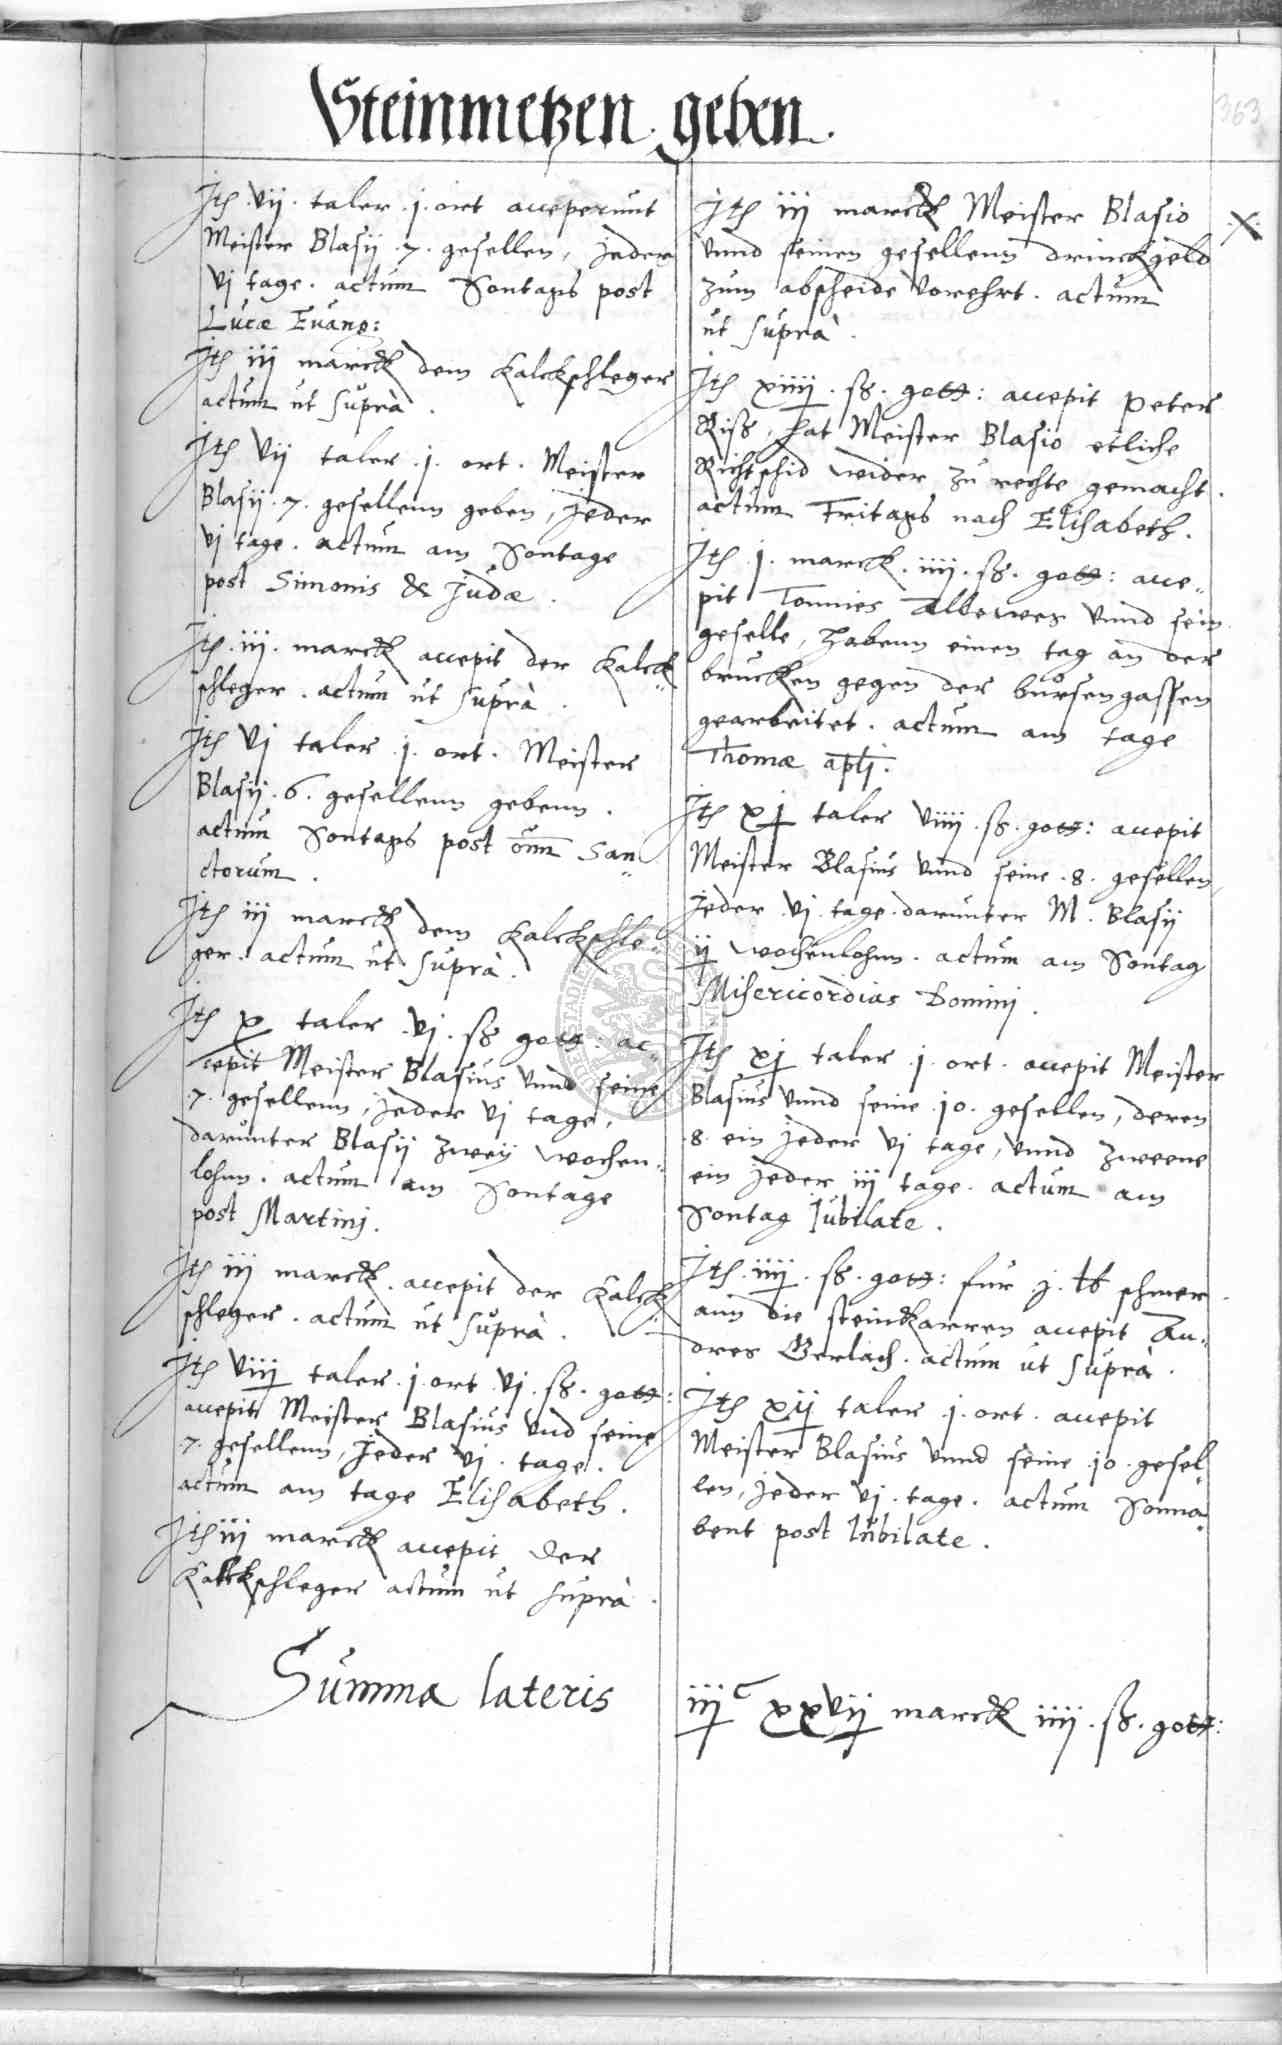 Steinmetzen geben.
363
Jtem vij. taler .j. ort acceperunt
Meister Blasij .7. gesellen, jeder
vj tage. actum Sontags post
Lucæ Euang:
Jtem iij marck dem Kalckschleger
actum ut suprà.
Jtem vij taler .j. ort. Meister
Blasij .7. gesellenn geben, jeder
vj tage. actum am Sontage
post Simonis & Judæ.
Jtem .iij. marck accepit der Kalck„
schleger. actum ut suprà.
Jtem vj taler .j. ort. Meister
Blasij .6. gesellenn gebenn.
actum Sontags post om̄ San„
ctorum.
Jtem iij marck dem Kalckschle„
ger. actum ut suprà.
Jtem x taler .vj. ß gott: ac„
cepit Meister Blasius vnnd seine
.7. gesellenn, jeder vj tage,
darunter Blasij zweij wochen„
lohnn. actum am Sontage
post Martinj.
Jtem iij marck. accepit der Kalck„
schleger. actum ut suprà.
Jtem viij taler .j. ort .vj. ß. gott:
accepit Meister Blasius vnd seine
.7. gesellenn, jeder vj. tage.
actum am tage Elisabeth.
Jtem iij marck accepit der
Kalckschleger actum ut suprà.
Jtem iij marck Meister Blasio
vnnd seinen gesellenn drinckgeld
zum abscheide vorehrt. actum
ut suprà.
X
Jtem xiiij. ß. gott: accepit Peter
Riß, hat Meister Blasio etliche
Richtschid wider zu rechte gemacht.
actum Fritags nach Elisabeth.
Jtem .j. marck. iiij. ß. gott: acce„
pit Tonnies Alberwes vnnd sein
geselle, habenn einen tag an der
brucken gegen der bursengassen
gearbeitet. actum am tage
Thomæ aplj.
Jtem xj taler viiij. ß. gott: accepit
Meister Blasius vnnd seine .8. gesellen,
jeder .vj. tage. darunter M. Blasij
ij wochenlohnn. actum am Sontag
Misericordias Dominj.
Jtem xj taler .j. ort. accepit Meister
Blasius vnnd seine .10. gesellen, deren
.8. ein jeder vj tage, vnnd zweene
ein jeder iij tage. actum am
Sontag Jubilate.
Jtem .iiij. ß. gott: fur j. ℔ schmer
ann die steinkarren accepit An„
dres Gerlach. actum ut suprà.
Jtem xij taler .j. ort. accepit
Meister Blasius vnnd seine .10. gesel„
len, jeder vj. tage. actum Sonna„
bent post Jubilate.
Summa lateris iijᶜ xxvij marck iiij. ß. gott: